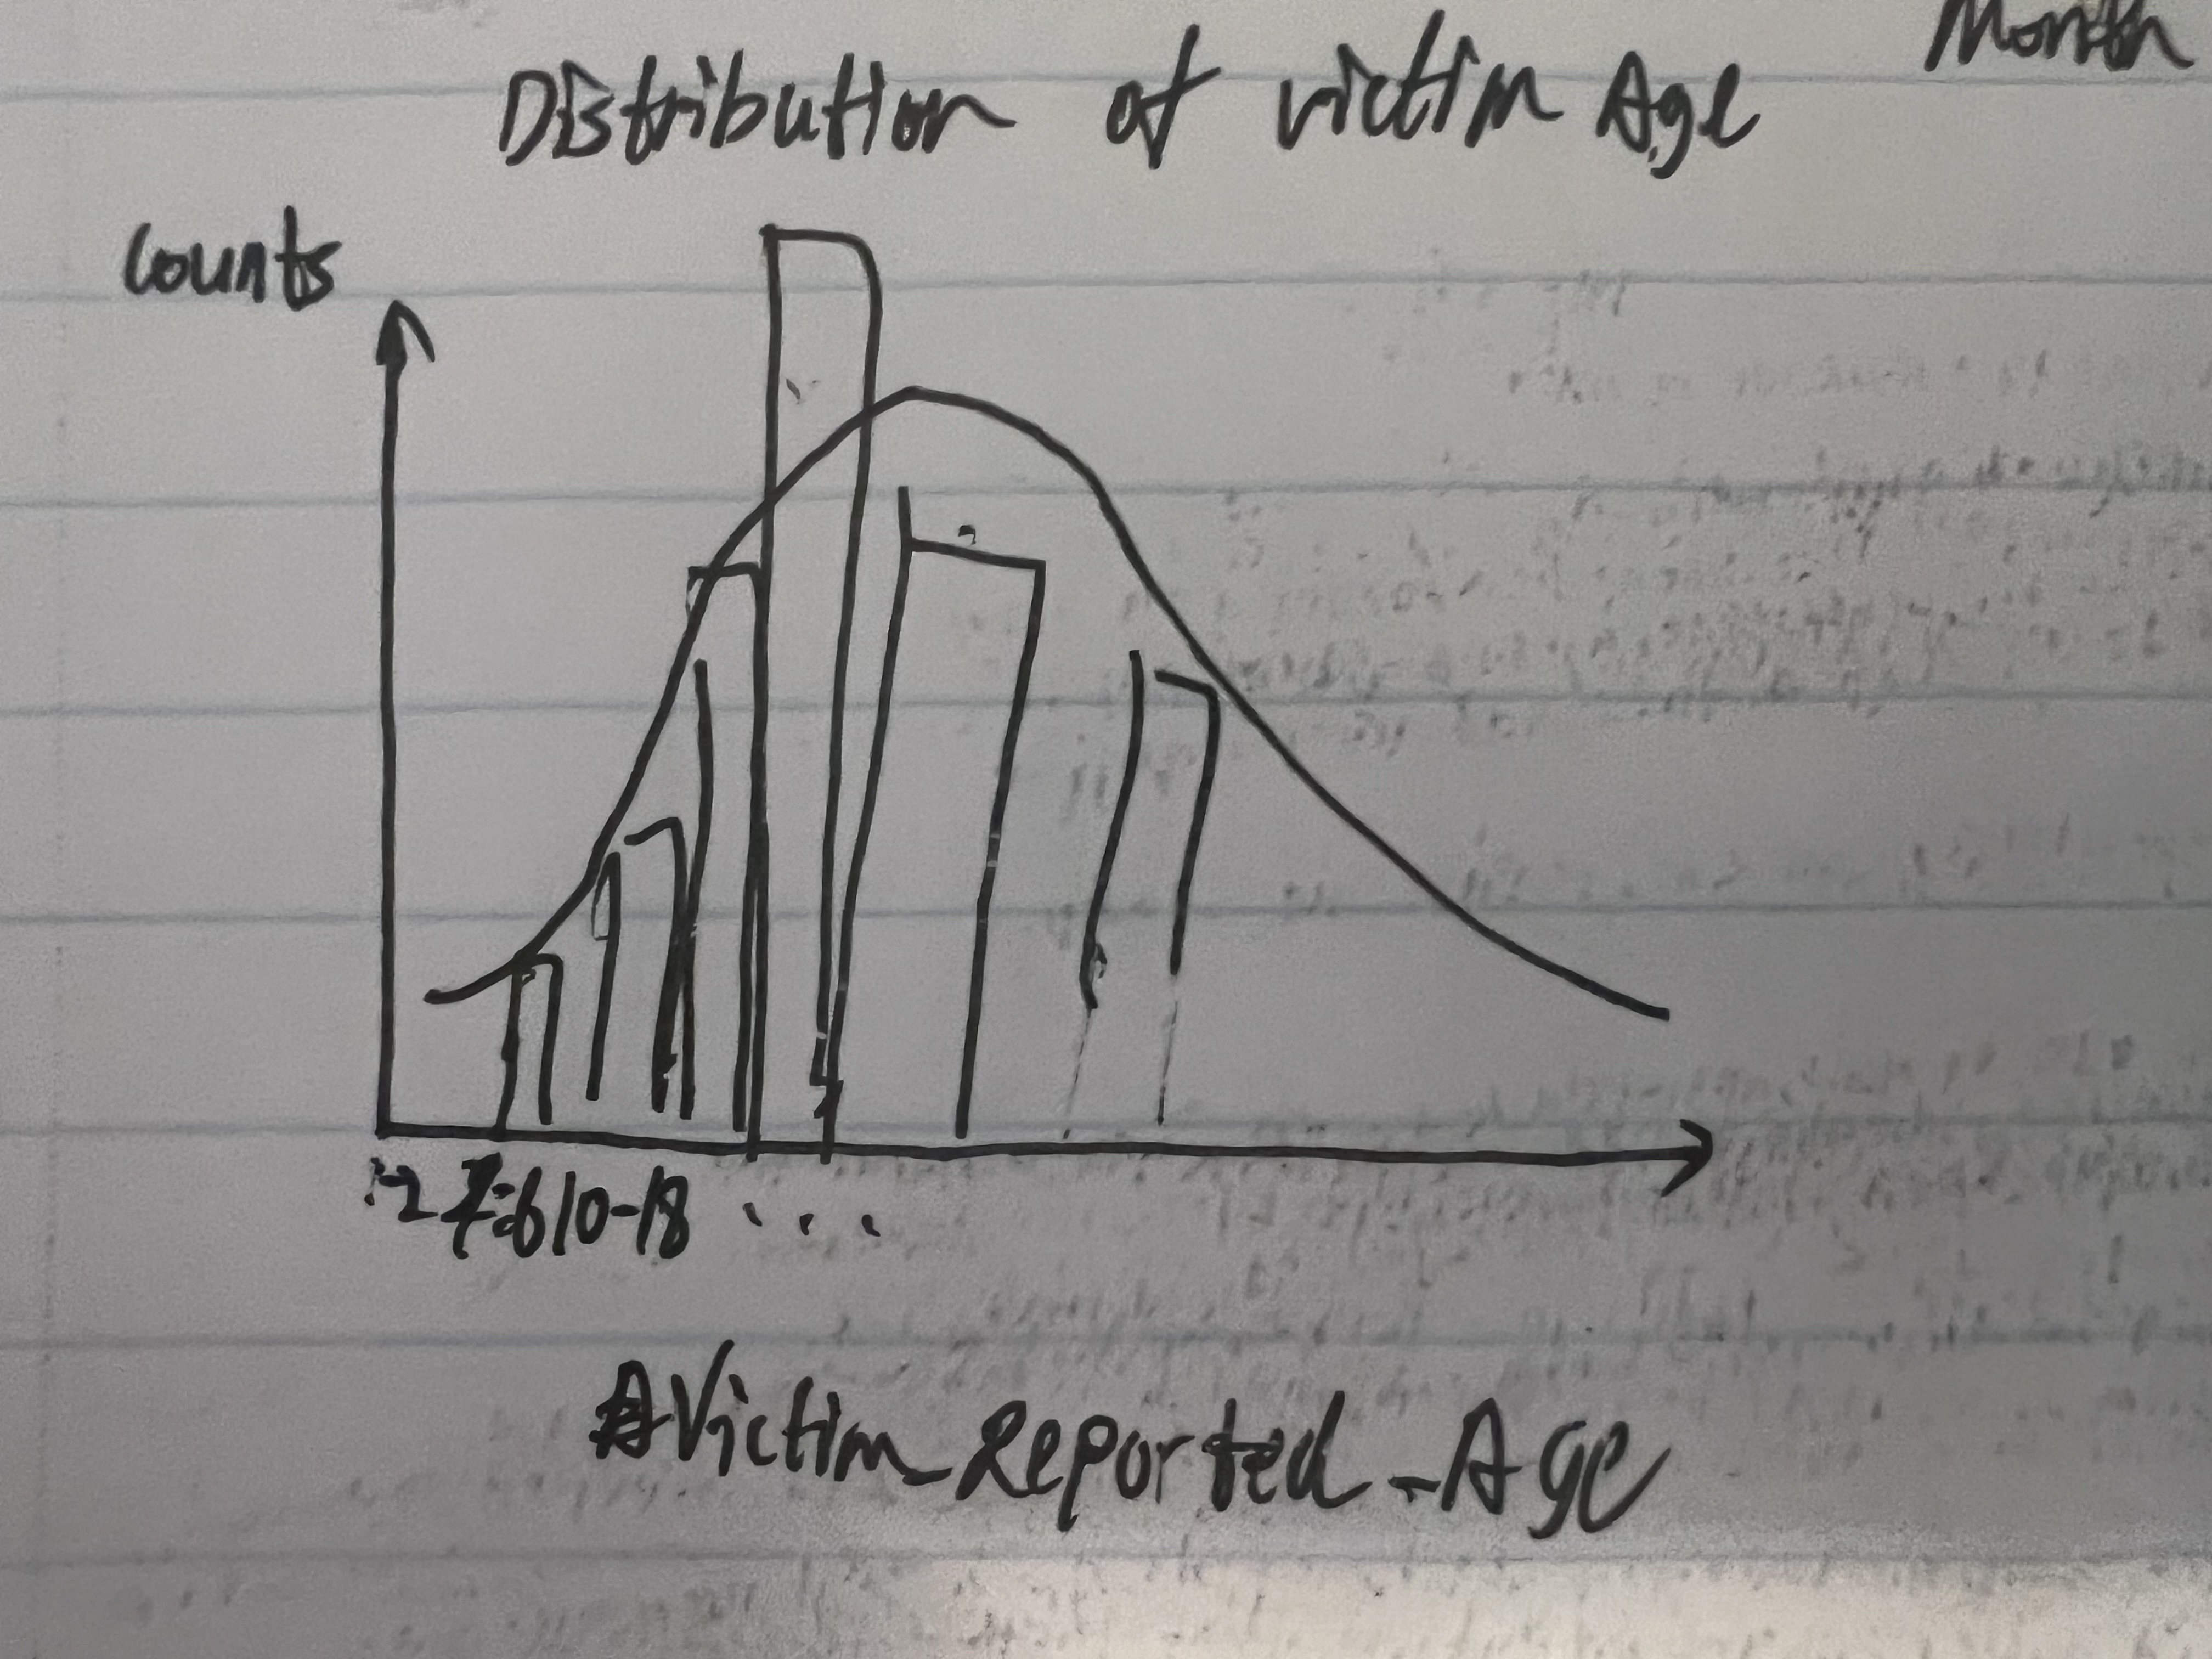 Month
Distribution of victim Age
Counts
10-18
Victim_Reported_Age